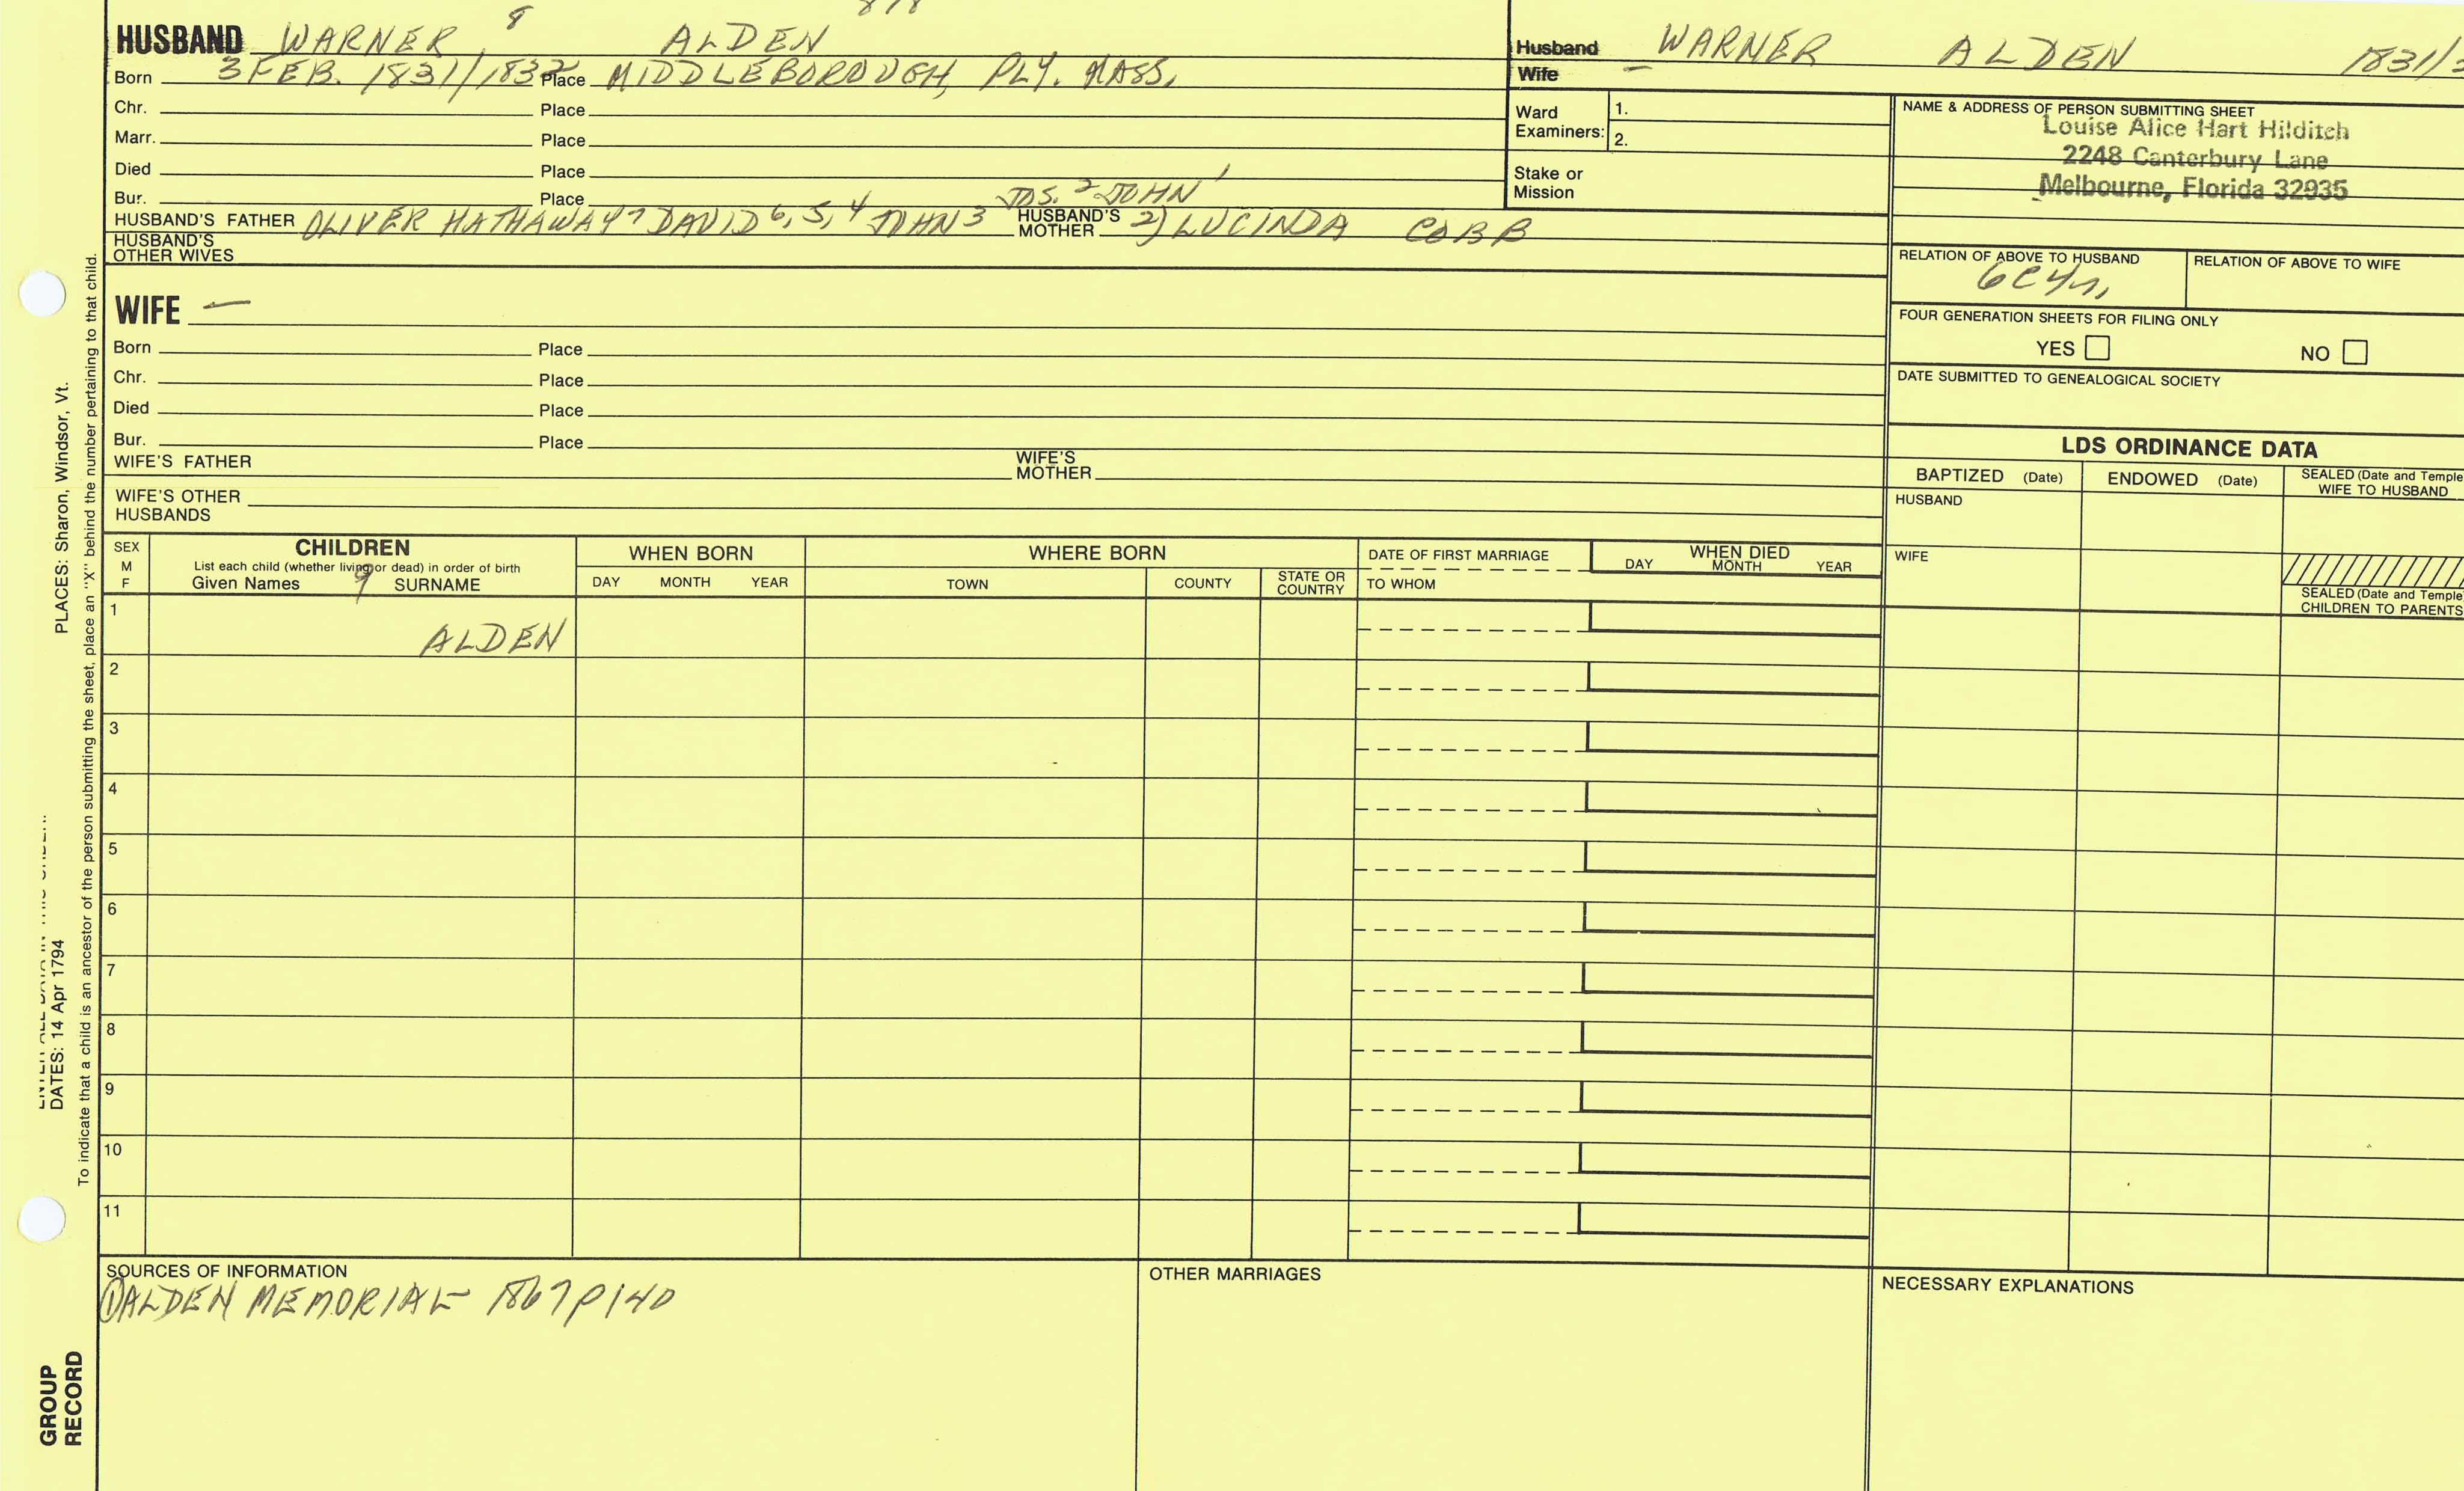 8 878
HUSBAND WARNER, ALDEN
Born 3 FEB. 1831/1832 Place MIDDLEBOROUGH, PLY. MASS.
Chr. Place
Marr. Place
Died Place
Bur. Place
JOS. 2 JOHN 1
HUSBAND'S FATHER OLIVER HATHAWAY 7 DAVID 6, 5, 4 JOHN 3 HUSBAND'S MOTHER 2) LUCINDA COBB
HUSBAND'S OTHER WIVES
WIFE —
Born Place
Chr. Place
Died Place
Bur. Place
WIFE'S FATHER WIFE'S MOTHER
WIFE'S OTHER HUSBANDS
Husband WARNER ALDEN 1831/3
Wife —
Ward Examiners: 1.
2.
Stake or Mission
NAME & ADDRESS OF PERSON SUBMITTING SHEET
Louise Alice Hart Hilditch
2248 Canterbury Lane
Melbourne, Florida 32935
RELATION OF ABOVE TO HUSBAND RELATION OF ABOVE TO WIFE
FOUR GENERATION SHEETS FOR FILING ONLY
YES NO
DATE SUBMITTED TO GENEALOGICAL SOCIETY
LDS ORDINANCE DATA
BAPTIZED (Date) ENDOWED (Date) SEALED (Date and Temple
WIFE TO HUSBAND
HUSBAND
WIFE
SEALED (Date and Temple
CHILDREN TO PARENTS
SEX M F
CHILDREN
List each child (whether living or dead) in order of birth
Given Names 9 SURNAME
WHEN BORN
DAY MONTH YEAR
WHERE BORN
TOWN COUNTY STATE OR COUNTRY
DATE OF FIRST MARRIAGE
TO WHOM
WHEN DIED
DAY MONTH YEAR
1 ALDEN
2
3
4
5
6
7
8
9
10
11
SOURCES OF INFORMATION
① ALDEN MEMORIAL 1867 p 140
OTHER MARRIAGES
NECESSARY EXPLANATIONS
PLACES: Sharon, Windsor, Vt.
DATES: 14 Apr 1794
To indicate that a child is an ancestor of the person submitting the sheet, place an "X" behind the number pertaining to that child.
GROUP
RECORD